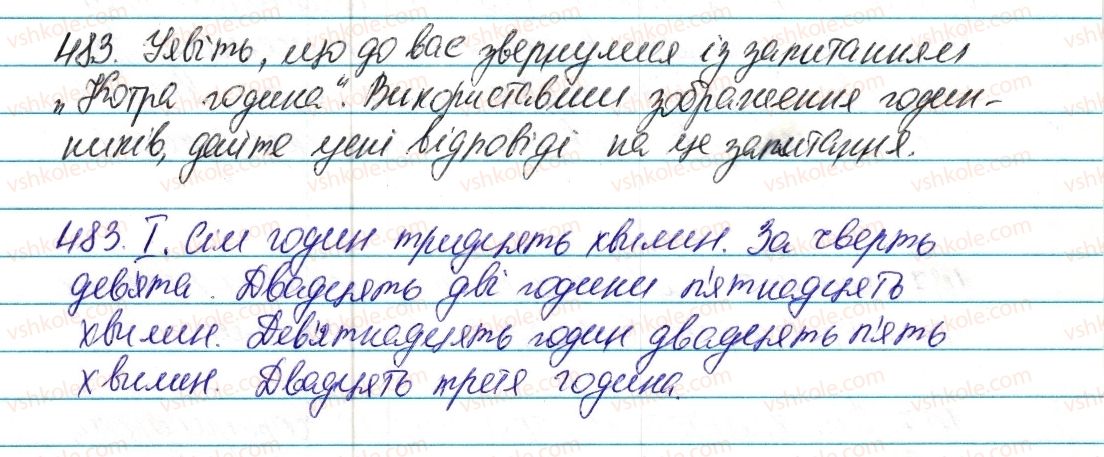 483. Уявіть, що до вас звернулися із запитанням
„Котра година". Використавши зображення годин-
ників, дайте усні відповіді на це запитання.
483. I. Сім годин тридцять хвилин. За чверть
дев'ята. Двадцять дві години п'ятнадцять
хвилин. Дев'ятнадцять годин двадцять п'ять
хвилин. Двадцять третя година.